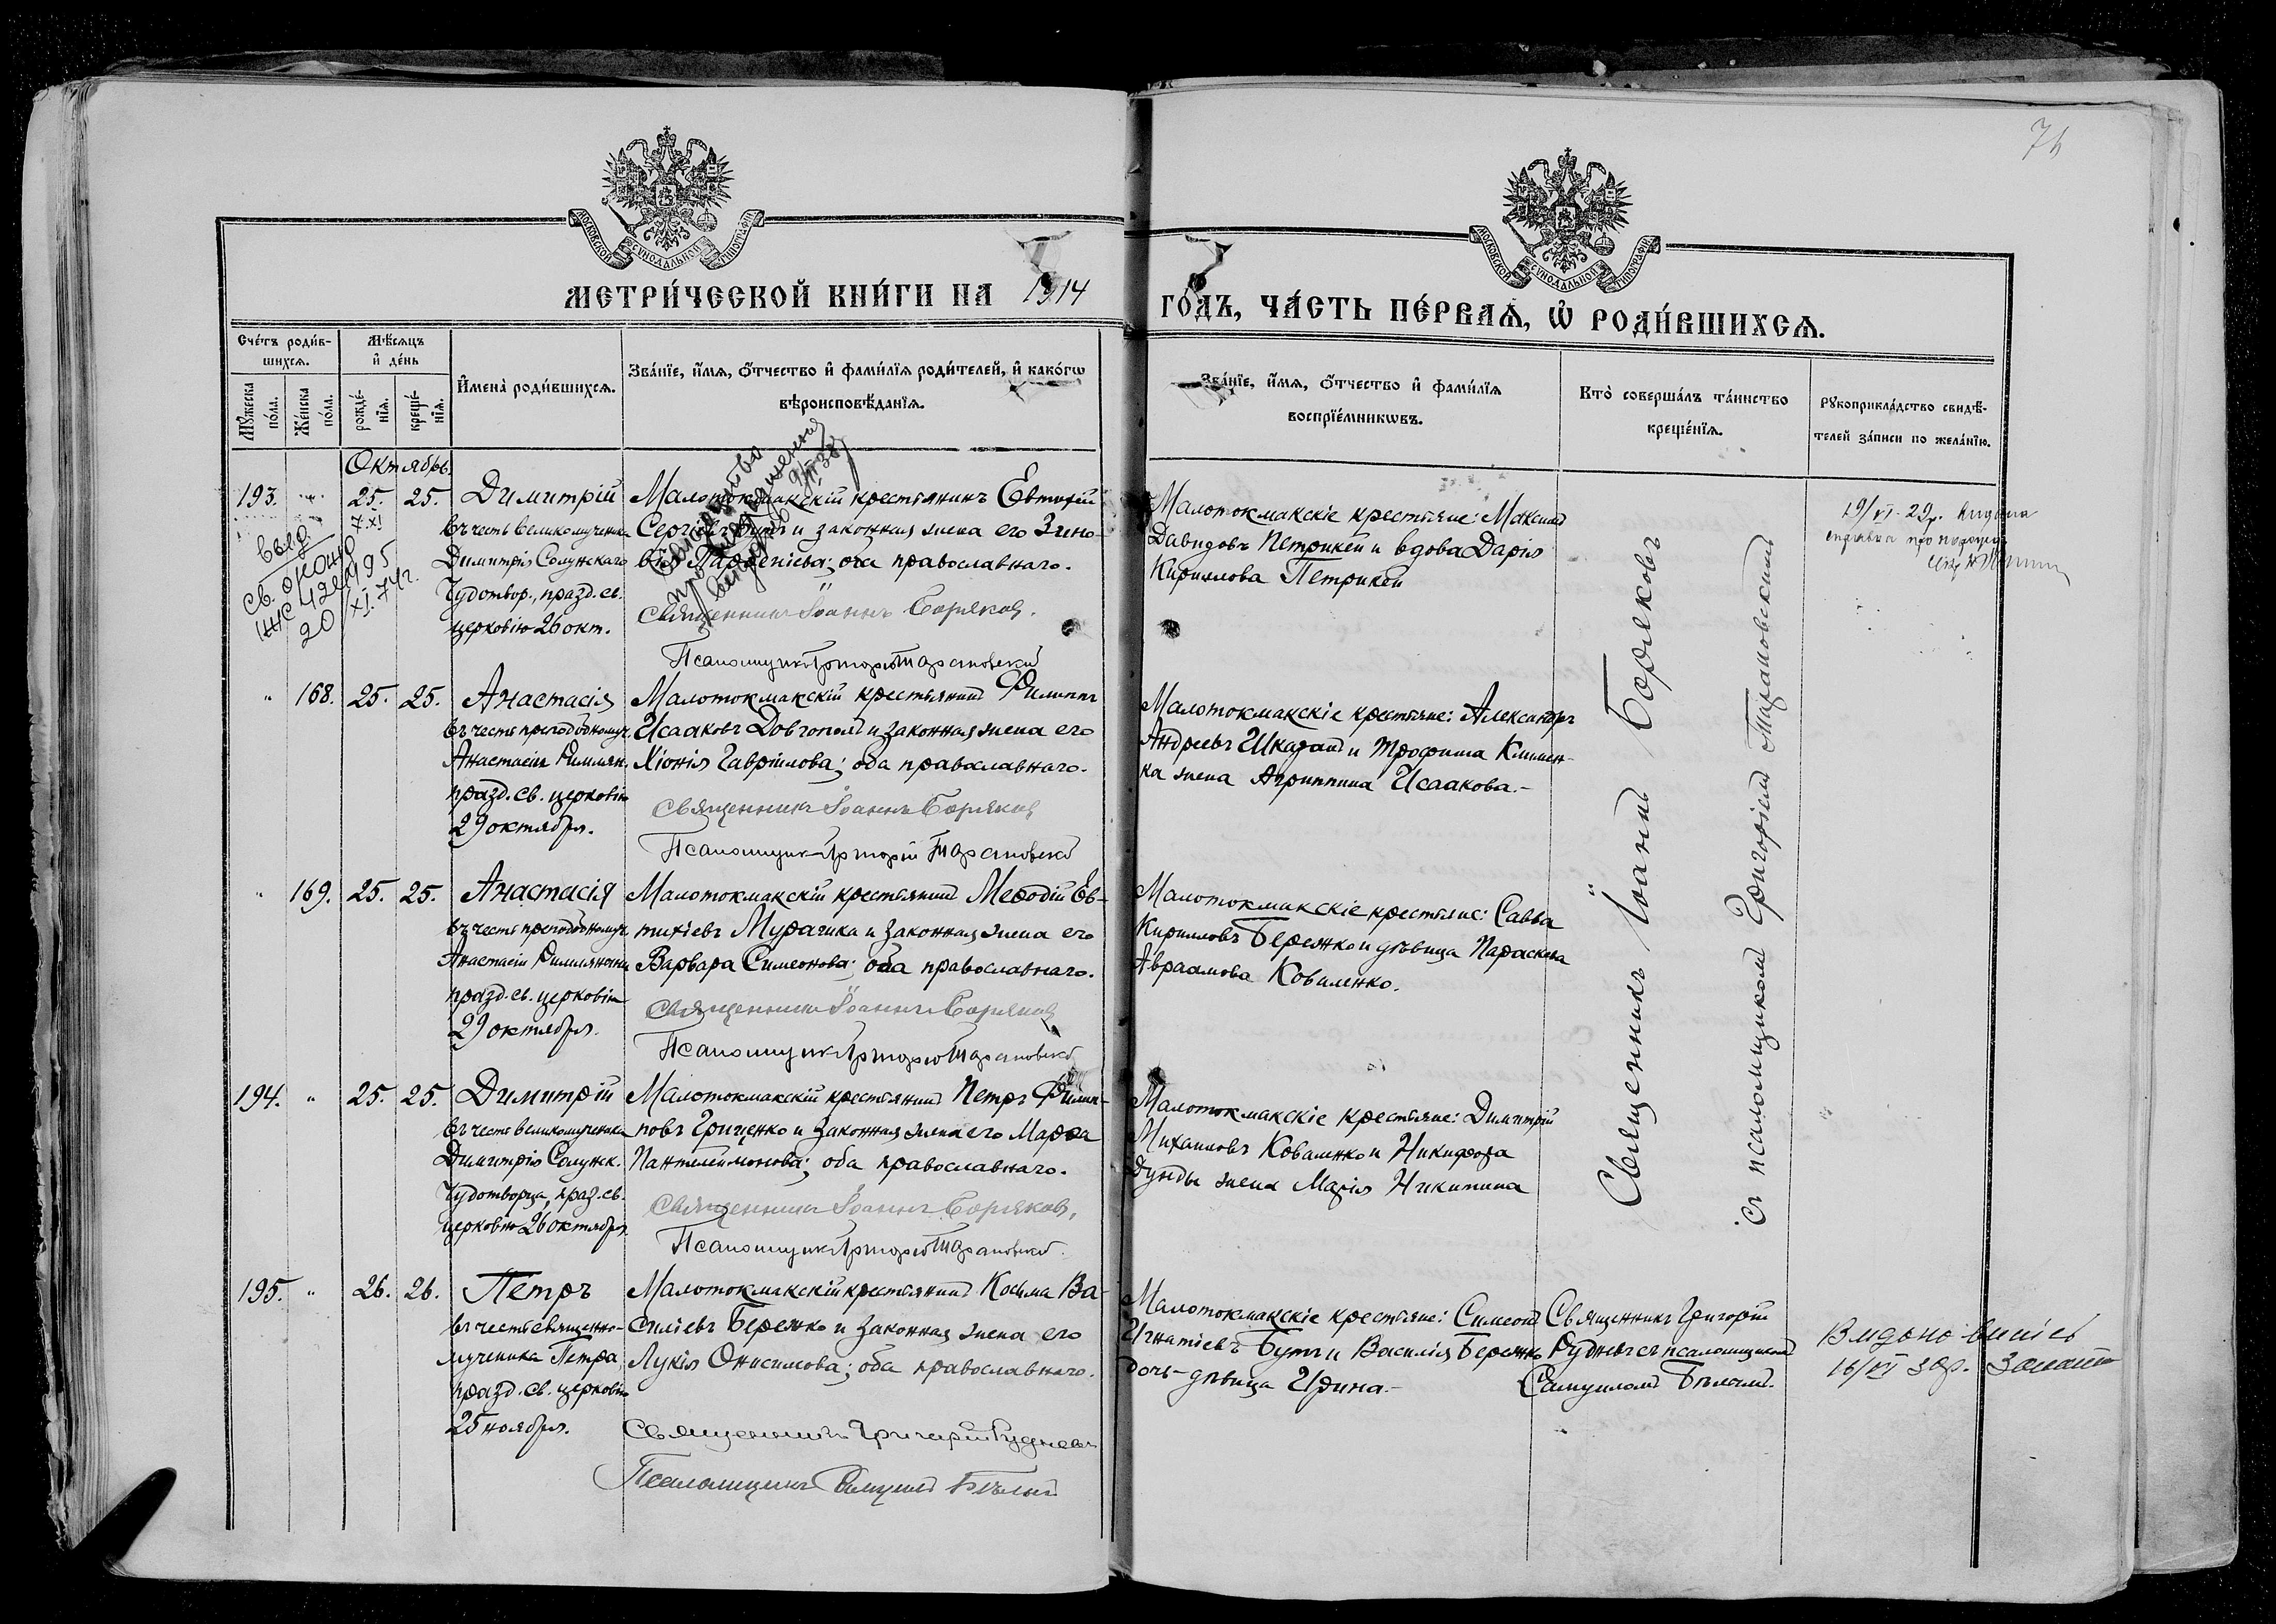 76
МОСКОВСКОЙ СѴНОДАЛЬНОЙ ТИПОГРАФІИ
МОСКОВСКОЙ СѴНОДАЛЬНОЙ ТИПОГРАФІИ
МЕТРИ́ЧЕСКОЙ КНИ́ГИ НА 1914
ГО́ДЪ, ЧА́СТЬ ПЕ́РВАѦ, Ѡ҆ РОДИ́ВШИХСѦ.
Сче́тъ роди́в-
шихсѧ.
Мꙋ́жеска
по́ла.
Же́нска
по́ла.
Мѣ́сѧцъ
и҆ де́нь
рожде́-
нїѧ.
креще́-
нїѧ.
И҆мена̀ роди́вшихсѧ.
Зва́нїе, и҆́мѧ, ѻ҆́тчество и҆ фами́лїѧ роди́телей, и҆ како́гѡ
вѣроисповѣ́данїѧ.
Зва́нїе, и҆́мѧ, ѻ҆́тчество и҆ фами́лїѧ
воспрїе́мникѡвъ.
Кто̀ соверша́лъ та́инство
креще́нїѧ.
Рꙋкоприкла́дство свидѣ́-
телей за́писи по жела́нїю.
Октябрь.
193. „ 25. 25.
7.XI
выд.
св.
20/XI.74г.
Димитрій
въ честь великомученика
Димитрія Солунскаго
Чудотвор., празд. св.
церковію 26 окт.
Малотокмакскій крестьянинъ Евтихій
Сергіевъ Бутъ и законная жена его Зино-
вія Парѳеніева; оба православнаго.
Священникъ Іоаннъ Боряковъ.
Псаломщикъ Григорій Тарановскій
Малотокмакскіе крестьяне: Максимъ
Давидовъ Петрикей и вдова Дарія
Кириллова Петрикей
Священникъ Іоаннъ Боряковъ
съ псаломщикомъ Григоріемъ Тарановскимъ
19/VI-29р. видана
справка про
„ 168. 25. 25.
Анастасія
въ честь преподобномуч.
Анастасіи Римлян.
празд. св. церковію
29 октября.
Малотокмакскій крестьянинъ Филиппъ
Исааковъ Довгополъ и законная жена его
Хіонія Гавріилова; оба православнаго.
Священникъ Іоаннъ Боряковъ
Псаломщикъ Григорій Тарановскій
Малотокмакскіе крестьяне: Александръ
Андреевъ и Трофима Климен-
ка жена Агриппина Исаакова.-
„ 169. 25. 25.
Анастасія
въ честь преподобномуч.
Анастасіи Римляныни
празд. св. церковію
29 октября.
Малотокмакскій крестьянинъ Меѳодій Ев-
тихіевъ Мурачика и законная жена его
Варвара Симеонова; оба православнаго.
Священникъ Іоаннъ Боряковъ
Псаломщикъ Григорій Тарановскій
Малотокмакскіе крестьяне: Савва
Кирилловъ Бережко и дѣвица Параскева
Авраамова Коваленко.
194. „ 25. 25.
Димитрій
въ честь великомученика
Димитрія Солунск.
Чудотворца, празд. св.
церковію 26 октября.
Малотокмакскій крестьянинъ Петръ Филип-
повъ Гриценко и законная жена его Марѳа
Пантелеимонова; оба православнаго.
Священникъ Іоаннъ Боряковъ.
Псаломщикъ Григорій Тарановскій
Малотокмакскіе крестьяне: Димитрій
Михаиловъ Коваленко и Никифора
Дунды жена Марія Никитина
195. „ 26. 26.
Петръ
въ честь священно-
мученика Петра,
празд. св. церковію
25 ноября.
Малотокмакскій крестьянинъ Косьма Ва-
силіевъ Бережко и законная жена его
Лукія Онисимова; оба православнаго.
Священникъ Григорій Рудневъ
Псаломщикъ Самуилъ Бѣлый
Малотокмакскіе крестьяне: Симеонъ
Игнатіевъ Бутъ и Василія Бережко
дочь-дѣвица Ирина.-
Священникъ Григорій
Рудневъ съ псаломщикомъ
Самуиломъ Бѣлымъ.
Видано випісь
16/VI 30р.